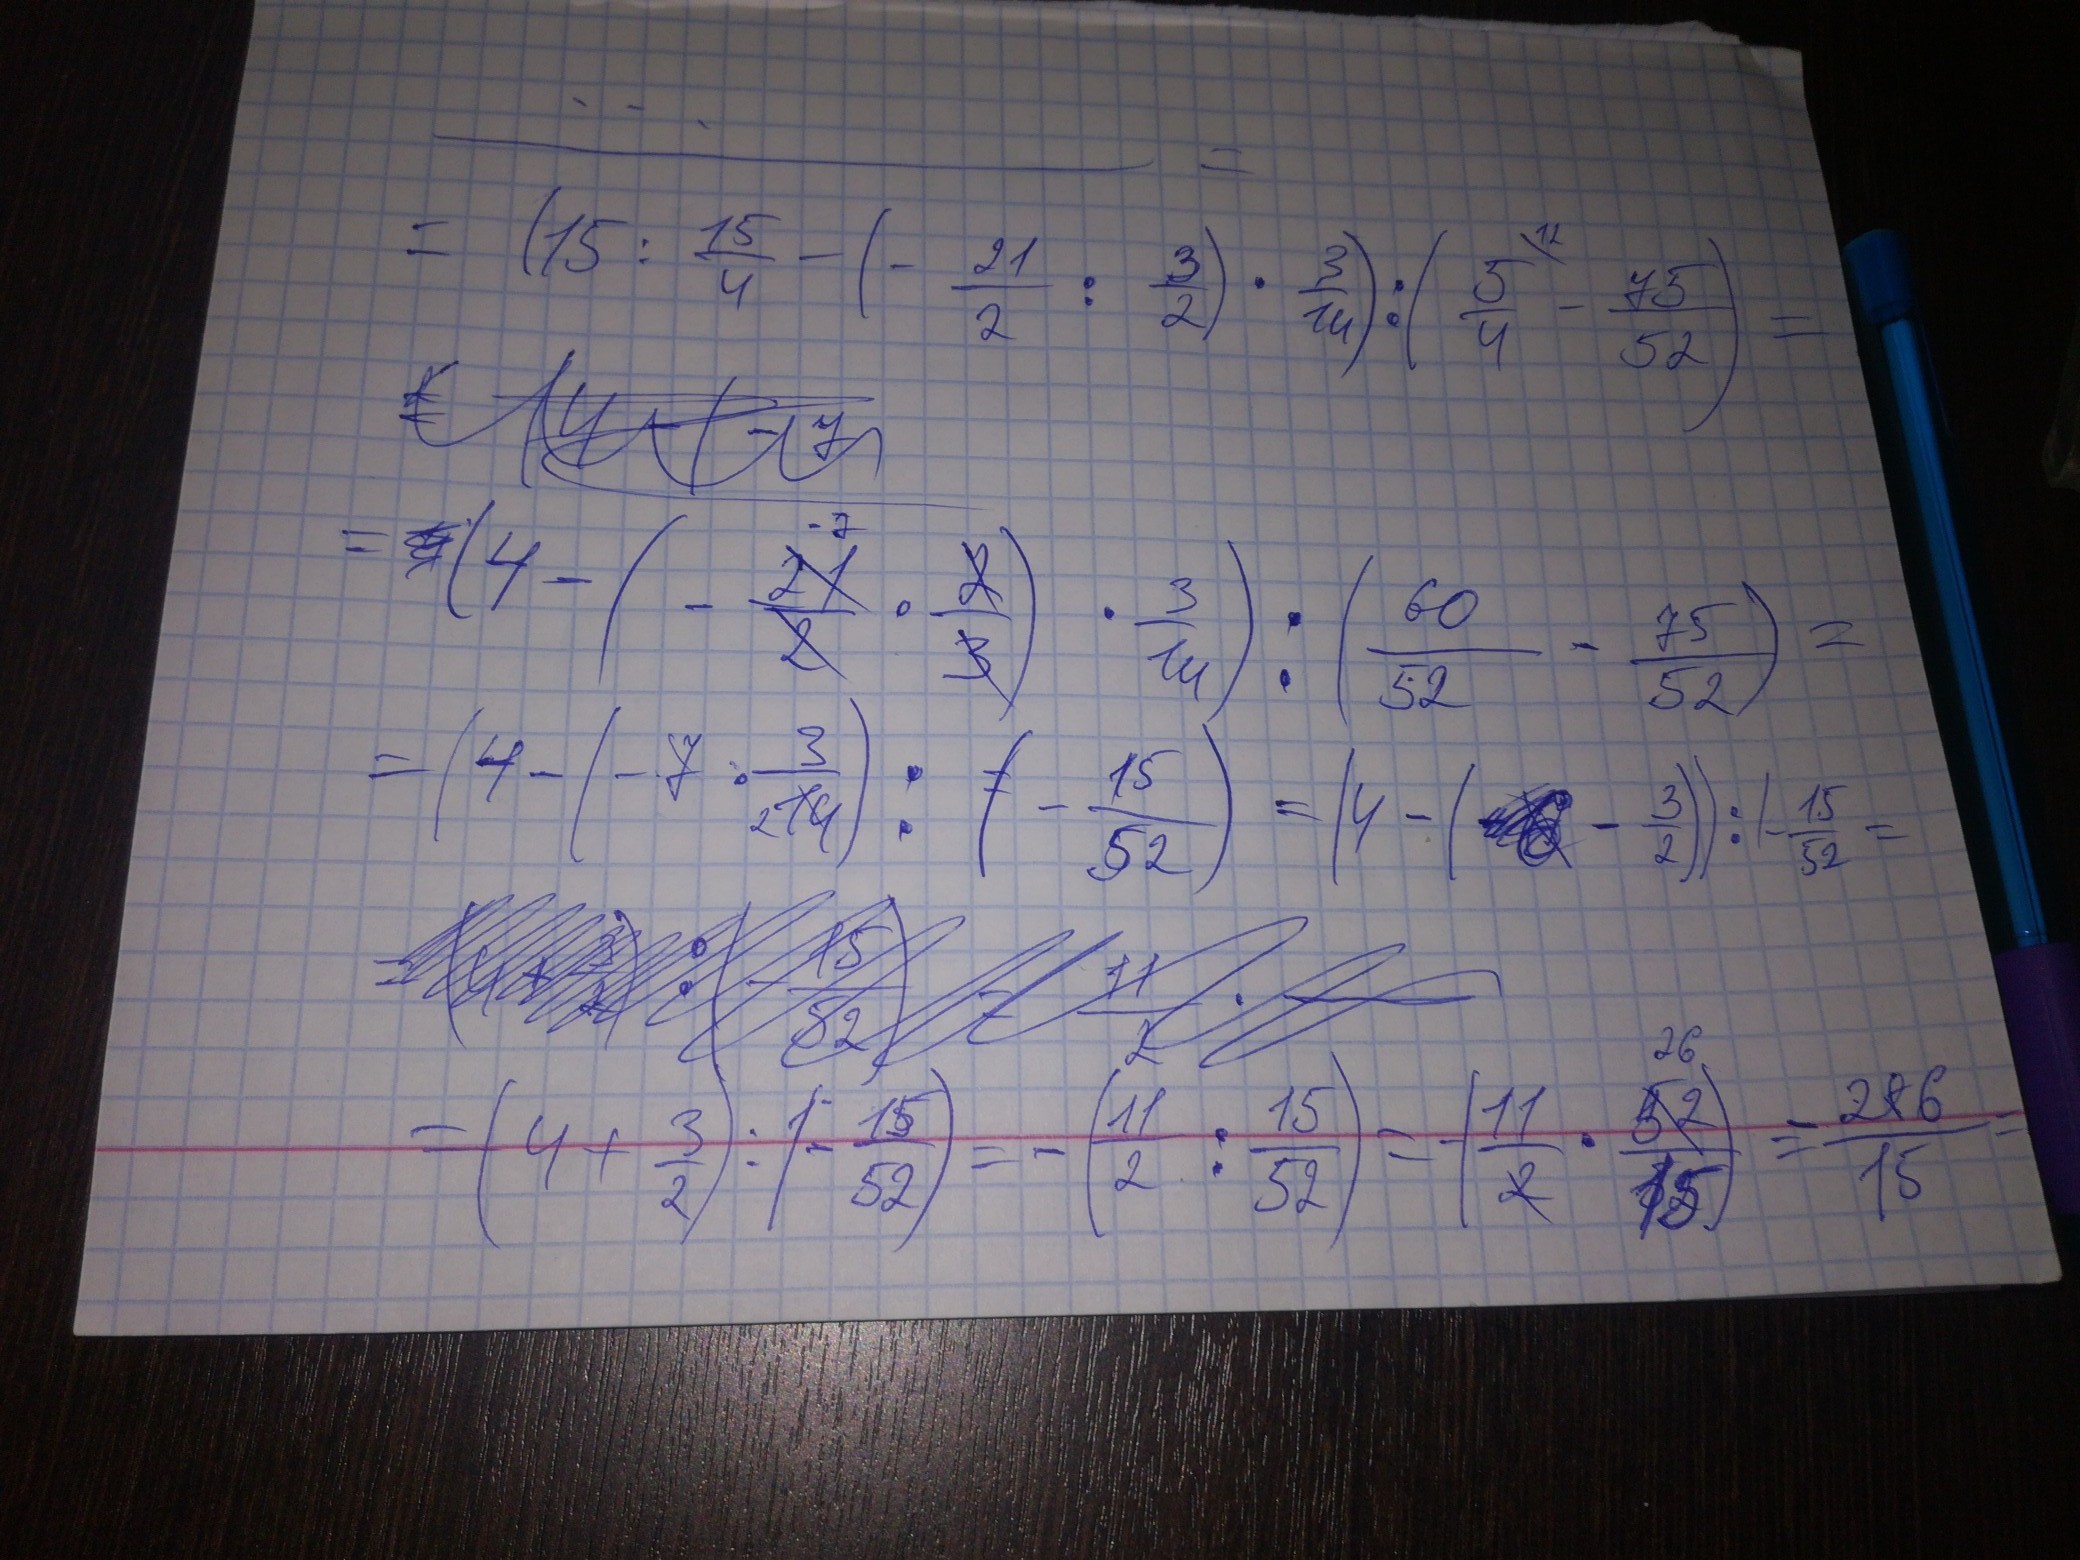 =
= (15 : 15/4 - (- 21/2 : 3/2) · 3/14) : (5/4 \12 - 75/52) =
(4 - (- 7
= (4 - (- 21/2 -7 · 2/3) · 3/14) : (60/52 - 75/52) =
= (4 - (- 7 · 3/14 2) : (- 15/52) = (4 - (- 3/2)) : (- 15/52 =
= (4 + 3/2) : (- 15/52) = 11/2 ·
= (4 + 3/2) : (- 15/52) = - (11/2 : 15/52) = - (11/2 · 52/15 26) = - 286/15 =